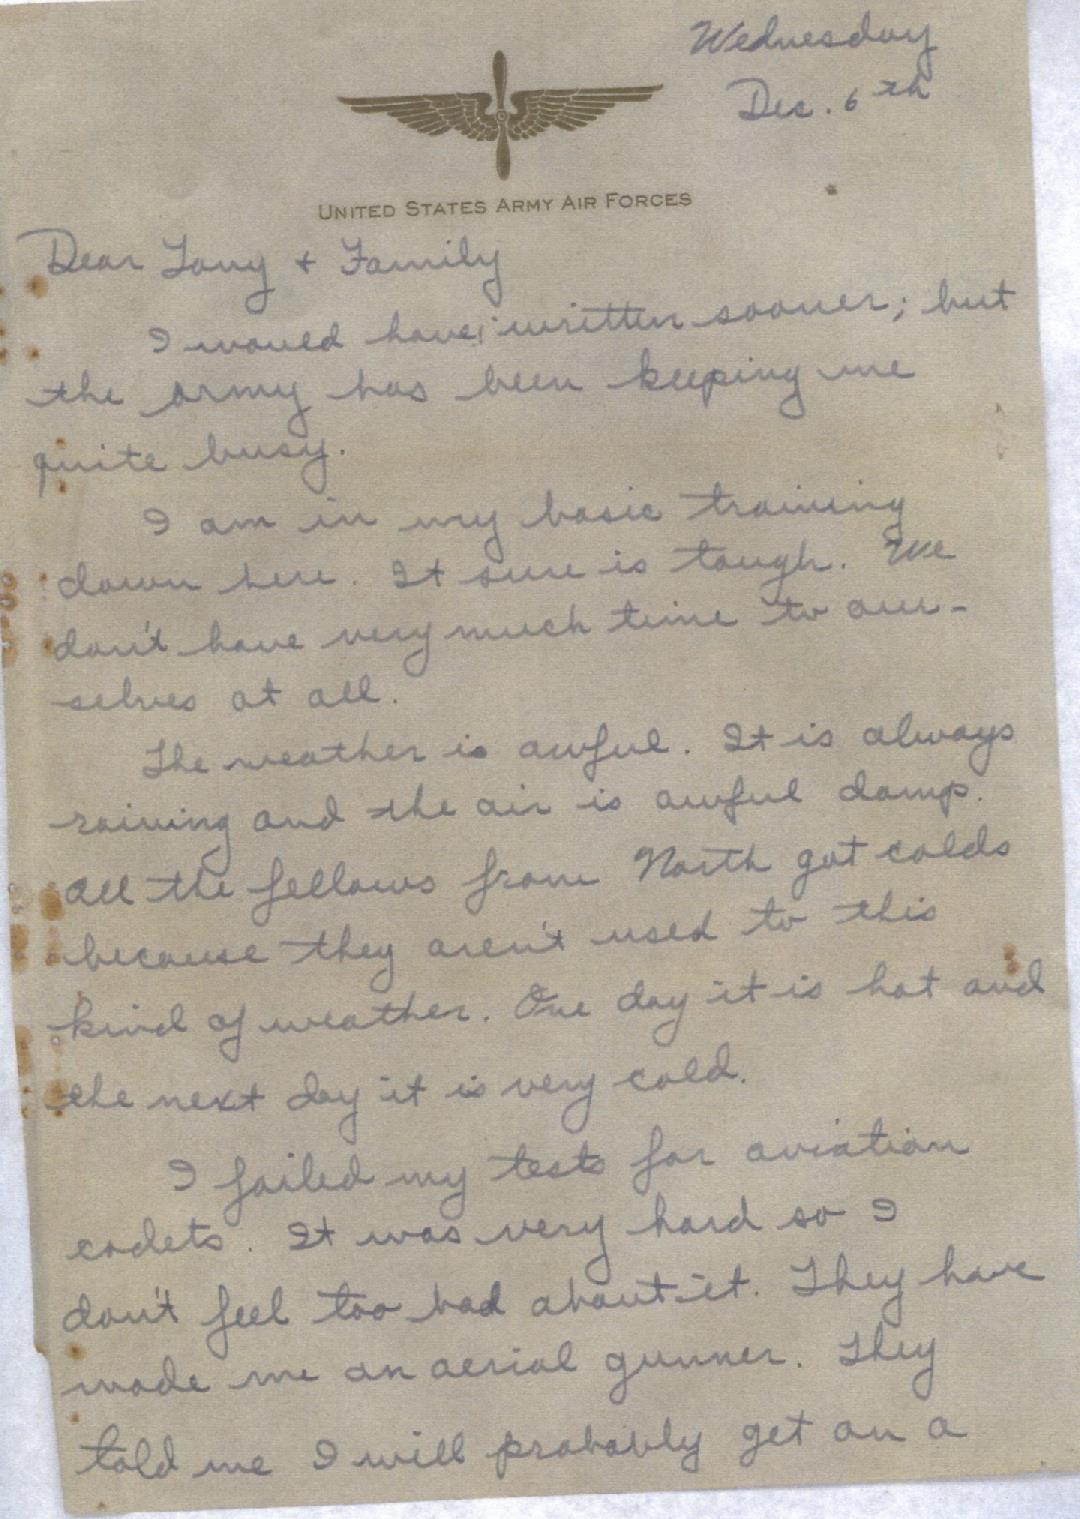 Wednesday
Dec. 6th
UNITED STATES ARMY AIR FORCES
Dear Tony + Family
I would have written sooner; but
the army has been keeping me
quite busy.
I am in my basic training
down here. It sure is tough. We
don't have very much time to our-
selves at all.
The weather is awful. It is always
raining and the air is awful damp.
All the fellows from North got colds
because they aren't used to this
kind of weather. One day it is hot and
the next day it is very cold.
I failed my tests for aviation
cadets. It was very hard so I
don't feel too bad about it. They have
made me an aerial gunner. They
told me I will probably get on a